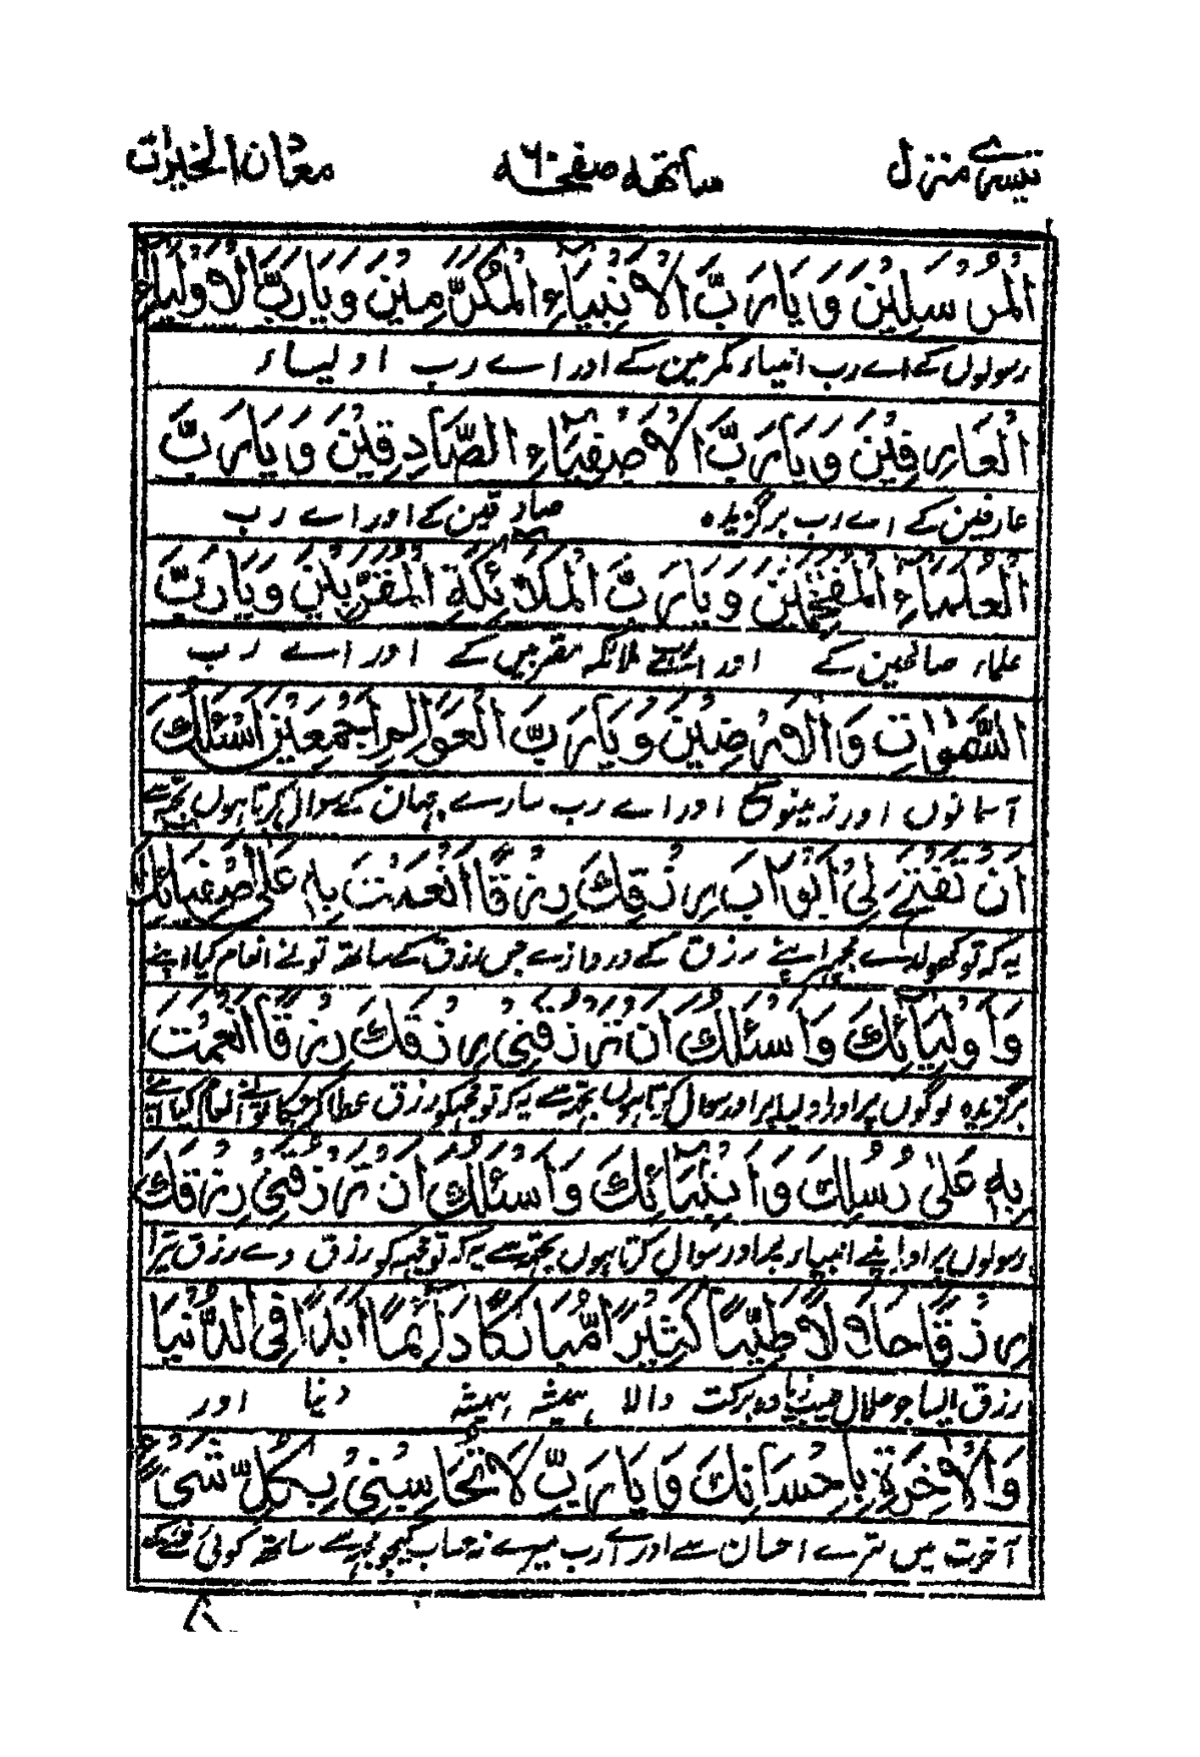 تیسرے منزل ساتھہ صفحہ ۶۰ معدان الخیرات
الْمُرْسَلِيْنَ وَيَارَبَّ الْاَنْبِيَآءِ الْمُكَرَّمِيْنَ وَيَارَبَّ الْاَوْلِيَاءِ
رسولوں کے اے رب انبیاء مکرمین کے اور اے رب اولیاء
الْعَارِفِيْنَ وَيَارَبَّ الْاَصْفِيَآءِ الصَّادِقِيْنَ وَيَارَبَّ
عارفین کے اے رب برگزیدہ صادقین کے اور اے رب
الْعُلَمَاءِ الْمُفَخَّمِيْنَ وَيَارَبَّ الْمَلَآئِكَةِ الْمُقَرَّبِيْنَ وَيَارَبَّ
علماء صالحین کے اور اے رب ملائکہ مقربیں کے اور اے رب
السَّمٰوَاتِ وَالْاَرَضِيْنَ وَيَارَبَّ الْعَوَالِمِ اَجْمَعِيْنَ اَسْئَلُكَ
آسمانوں اور زمینوں کے اور اے رب سارے جہان کے سوال کرتا ہوں تجھ سے
اَنْ تَفْتَحَ لِيْ اَبْوَابَ رِزْقِكَ رِزْقًا اَنْعَمْتَ بِهٖ عَلٰى اَصْفِيَائِكَ
یہ کہ تو کھولدے مجھپر اپنے رزق کے دروازے جس رزق کے ساتھ تو نے انعام کیا اپنے
وَاَوْلِيَآئِكَ وَاَسْئَلُكَ اَنْ تَرْزُقَنِيْ رِزْقَكَ رِزْقًا اَنْعَمْتَ
برگزیدہ لوگوں پر اور اولیا پر اور سوال کرتا ہوں تجھ سے یہ کہ تو مجھکو رزق عطا کر جسکا تو نے انعام کیا ہے
بِهٖ عَلٰى رُسُلِكَ وَاَنْبِيَآئِكَ وَاَسْئَلُكَ اَنْ تَرْزُقَنِيْ رِزْقَكَ
رسولوں پر اور اپنے انبیاء پر اور سوال کرتا ہوں تجھ سے یہ کہ تو مجھہ کو رزق دے رزق تیرا
رِزْقًا حَلَالًا طَيِّبًا كَثِيْرًا مُّبَارَكًا دَآئِمًا اَبَدًا فِي الدُّنْيَا
رزق ایسا جو حلال طیب زیادہ برکت والا ہمیشہ ہمیشہ دنیا اور
وَالْاٰخِرَةِ بِاِحْسَانِكَ وَيَارَبِّ لَا تُحَاسِبْنِيْ بِكُلِّ شَيْءٍ
آخرت میں تیرے احسان سے اور اے رب میرے نہ حساب کیجیو مجھ سے ساتھ کوئی شے کے